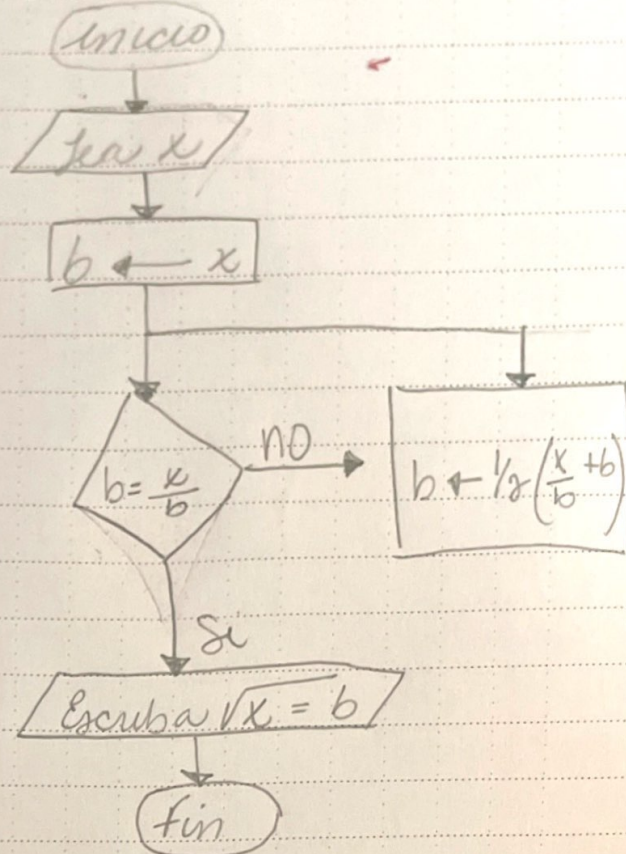 inicio
Lea x
b ← x
b = x/b
no
b ← 1/2 (x/b + b)
Si
Escriba √x = b
fin